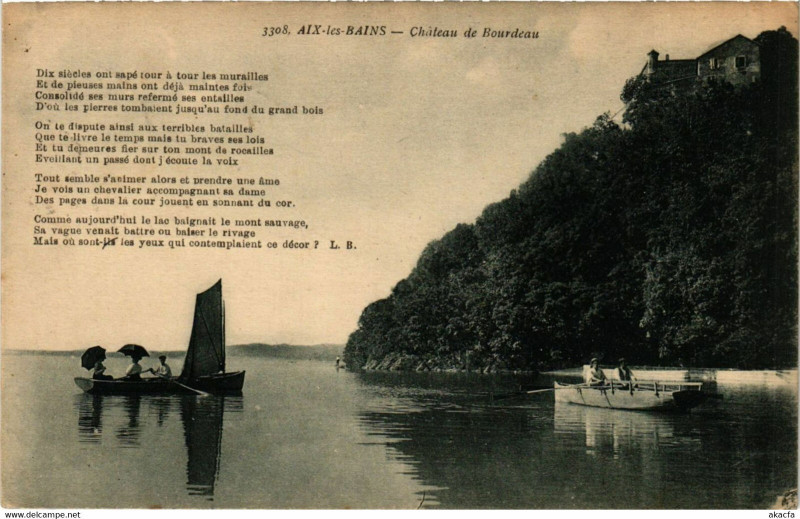 3308. AIX-les-BAINS — Château de Bourdeau
Dix siècles ont sapé tour à tour les murailles
Et de pieuses mains ont déjà maintes foiv
Consolidé ses murs refermé ses entailles
D'où les pierres tombaient jusqu'au fond du grand bois
On te dispute ainsi aux terribles batailles
Que te livre le temps mais tu braves ses lois
Et tu demeures fier sur ton mont de rocailles
Eveillant un passé dont j'écoute la voix
Tout semble s'animer alors et prendre une âme
Je vois un chevalier accompagnant sa dame
Des pages dans la cour jouent en sonnant du cor.
Comme aujourd'hui le lac baignait le mont sauvage,
Sa vague venait battre ou baiser le rivage
Mais où sont-ils les yeux qui contemplaient ce décor ? L. B.
Delcampe.net
akacfa